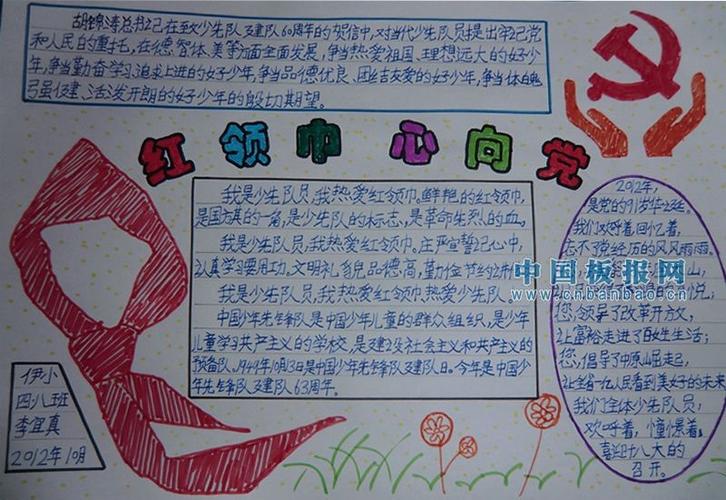 胡锦涛总书记在致少先队建队60周年的贺信中,对当代少先队员提出牢记党
和人民的重托,在德智体、美等方面全面发展,争当热爱祖国、理想远大的好少
年,争当勤奋学习、追求上进的好少年,争当品德优良、团结友爱的好少年,争当体魄
强健、活泼开朗的好少年的殷切期望。
红领巾 心向党
我是少先队员,我热爱红领巾。鲜艳的红领巾,
是国旗的一角,是少先队的标志,是革命先烈的血。
我是少先队员,我热爱红领巾。庄严宣誓记心中,
认真学习要用功。文明礼貌品德高,勤俭节约
我是少先队员,我热爱红领巾热爱少先队
中国少年先锋队是中国少年儿童的群众组织,是少年
儿童学习共产主义的学校,是建设社会主义和共产主义的
预备队。1949年10月13是中国少年先锋队建队日。今年是中国少
年先锋队建队63周年。
2012年,
是党的91岁华诞。
我们欢呼着回忆着,
忘不了党经历的风风雨雨。
山,
悦;
您,领导了改革开放,
让富裕走进了百姓生活;
您,倡导了中原崛起,
让全省一亿人民看到美好的未来
我们全体少先队员,
欢呼着,憧憬着,
喜迎十八大的
召开。
中国板报网
www.cnbanbao.cn
伊小
四八班
李宜真
2012年10月